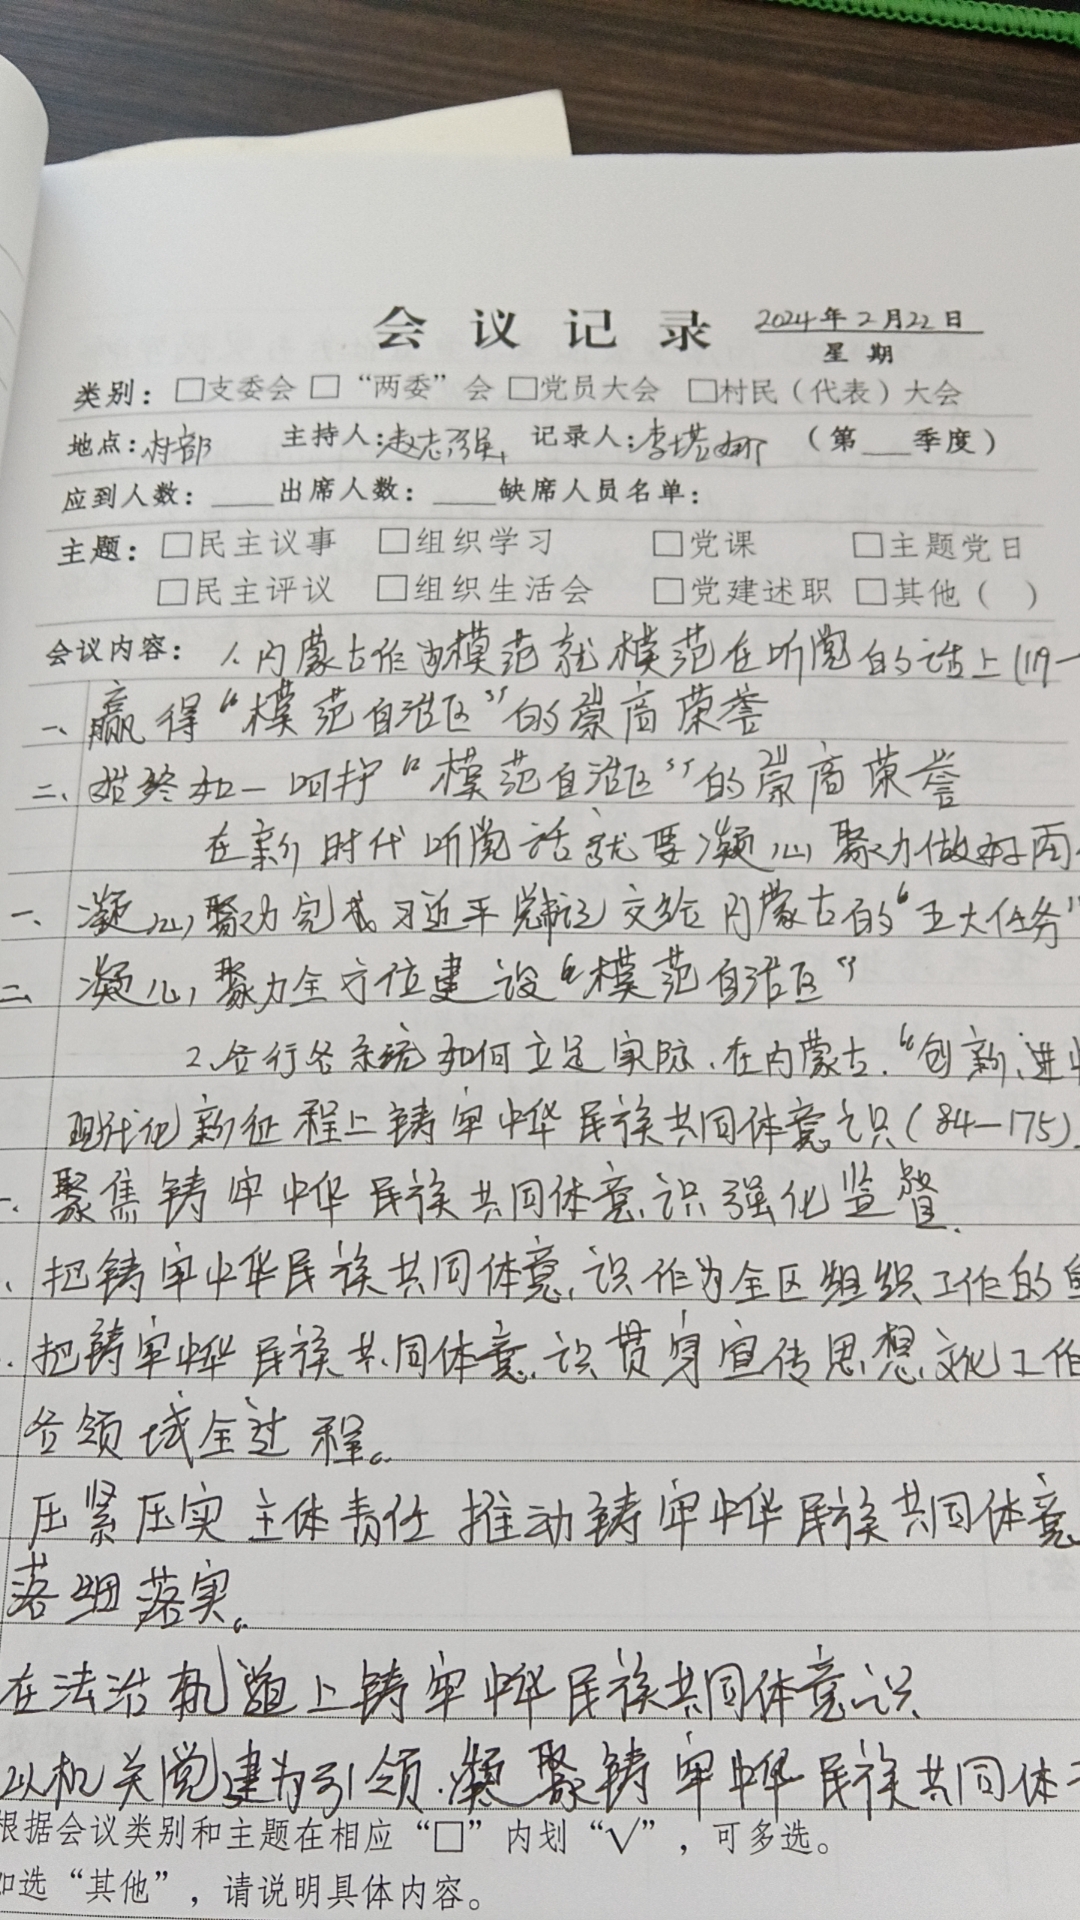 会议记录 2024年2月22日
星期
类别：□支委会 □“两委”会 □党员大会 □村民（代表）大会
地点：村部 主持人：赵志强 记录人：李塔娜 （第___季度）
应到人数：____出席人数：____缺席人员名单：
主题：□民主议事 □组织学习 □党课 □主题党日
□民主评议 □组织生活会 □党建述职 □其他（ ）
会议内容： 1.内蒙古作为模范就模范在听党的话上(119-
一、赢得“模范自治区”的崇高荣誉
二、始终如一呵护“模范自治区”的崇高荣誉
在新时代听党话就要凝心聚力做好两
一、凝心聚力完成习近平总书记交给内蒙古的“五大任务”
二、凝心聚力全方位建设“模范自治区”
2.各行各系统如何立足实际、在内蒙古“创新、进
现代化新征程上铸牢中华民族共同体意识(84—175)
聚焦铸牢中华民族共同体意识强化监督
把铸牢中华民族共同体意识作为全区组织工作的
把铸牢中华民族共同体意识贯穿宣传思想文化工作
各领域全过程。
压紧压实主体责任推动铸牢中华民族共同体意
落细落实。
在法治轨道上铸牢中华民族共同体意识
以机关党建为引领、凝聚铸牢中华民族共同体
根据会议类别和主题在相应“□”内划“√”，可多选。
如选“其他”，请说明具体内容。